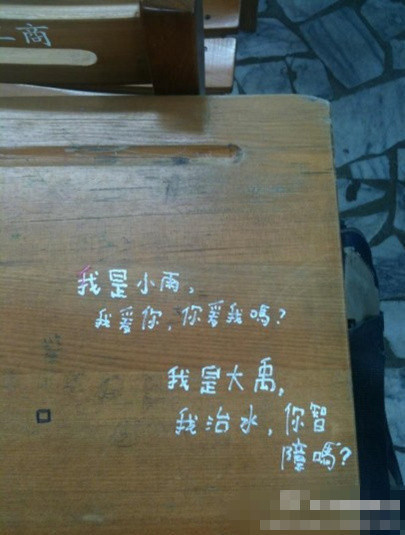 商
我是小雨，
我爱你，你爱我嗎？
我是大禹，
我治水，你智
障嗎？